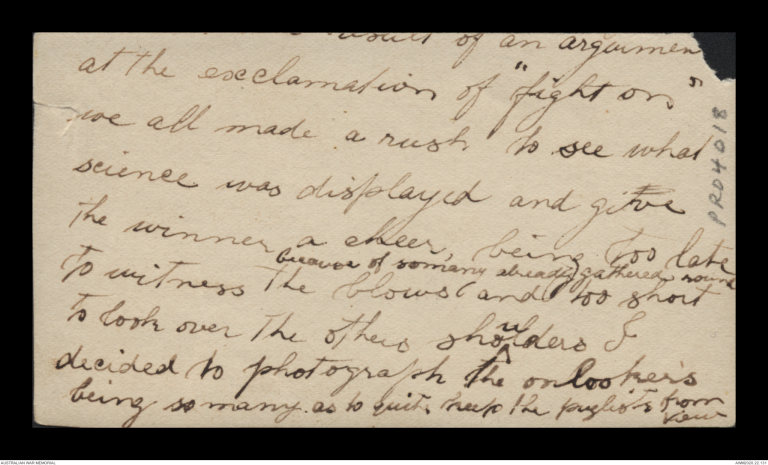 result of an argumen
at the exclamation of "fight on"
we all made a rush to see what
science was displayed and give
the winner a cheer, being too late
because of somany already gathered round
to witness the blows (and too short
to look over the others shoulders I
decided to photograph the onlooker's
being somany as to quite keep the puglists from
view
PR04018
AUSTRALIAN WAR MEMORIAL